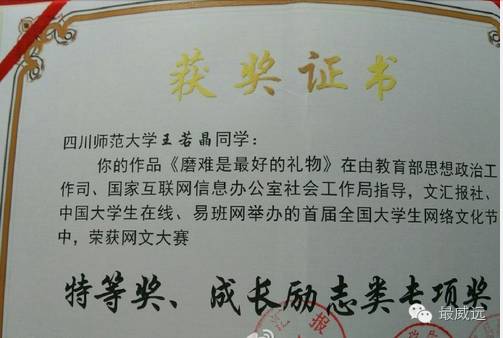 获奖证书
四川师范大学王若晶同学:
你的作品《磨难是最好的礼物》在由教育部思想政治工
作司、国家互联网信息办公室社会工作局指导，文汇报社、
中国大学生在线、易班网举办的首届全国大学生网络文化节
中，荣获网文大赛
特等奖、成长励志类专项奖
报
最威远